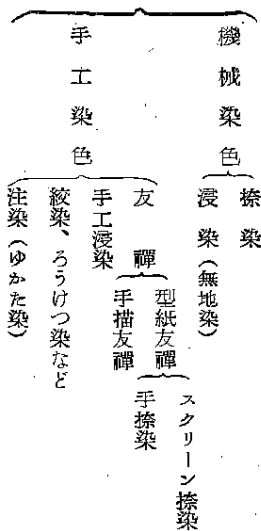 機械染色
捺染
浸染(無地染)
手工染色
友禪
型紙友禪
スクリーン捺染
手捺染
手描友禪
手工浸染
絞染、ろうけつ染など
注染(ゆかた染)